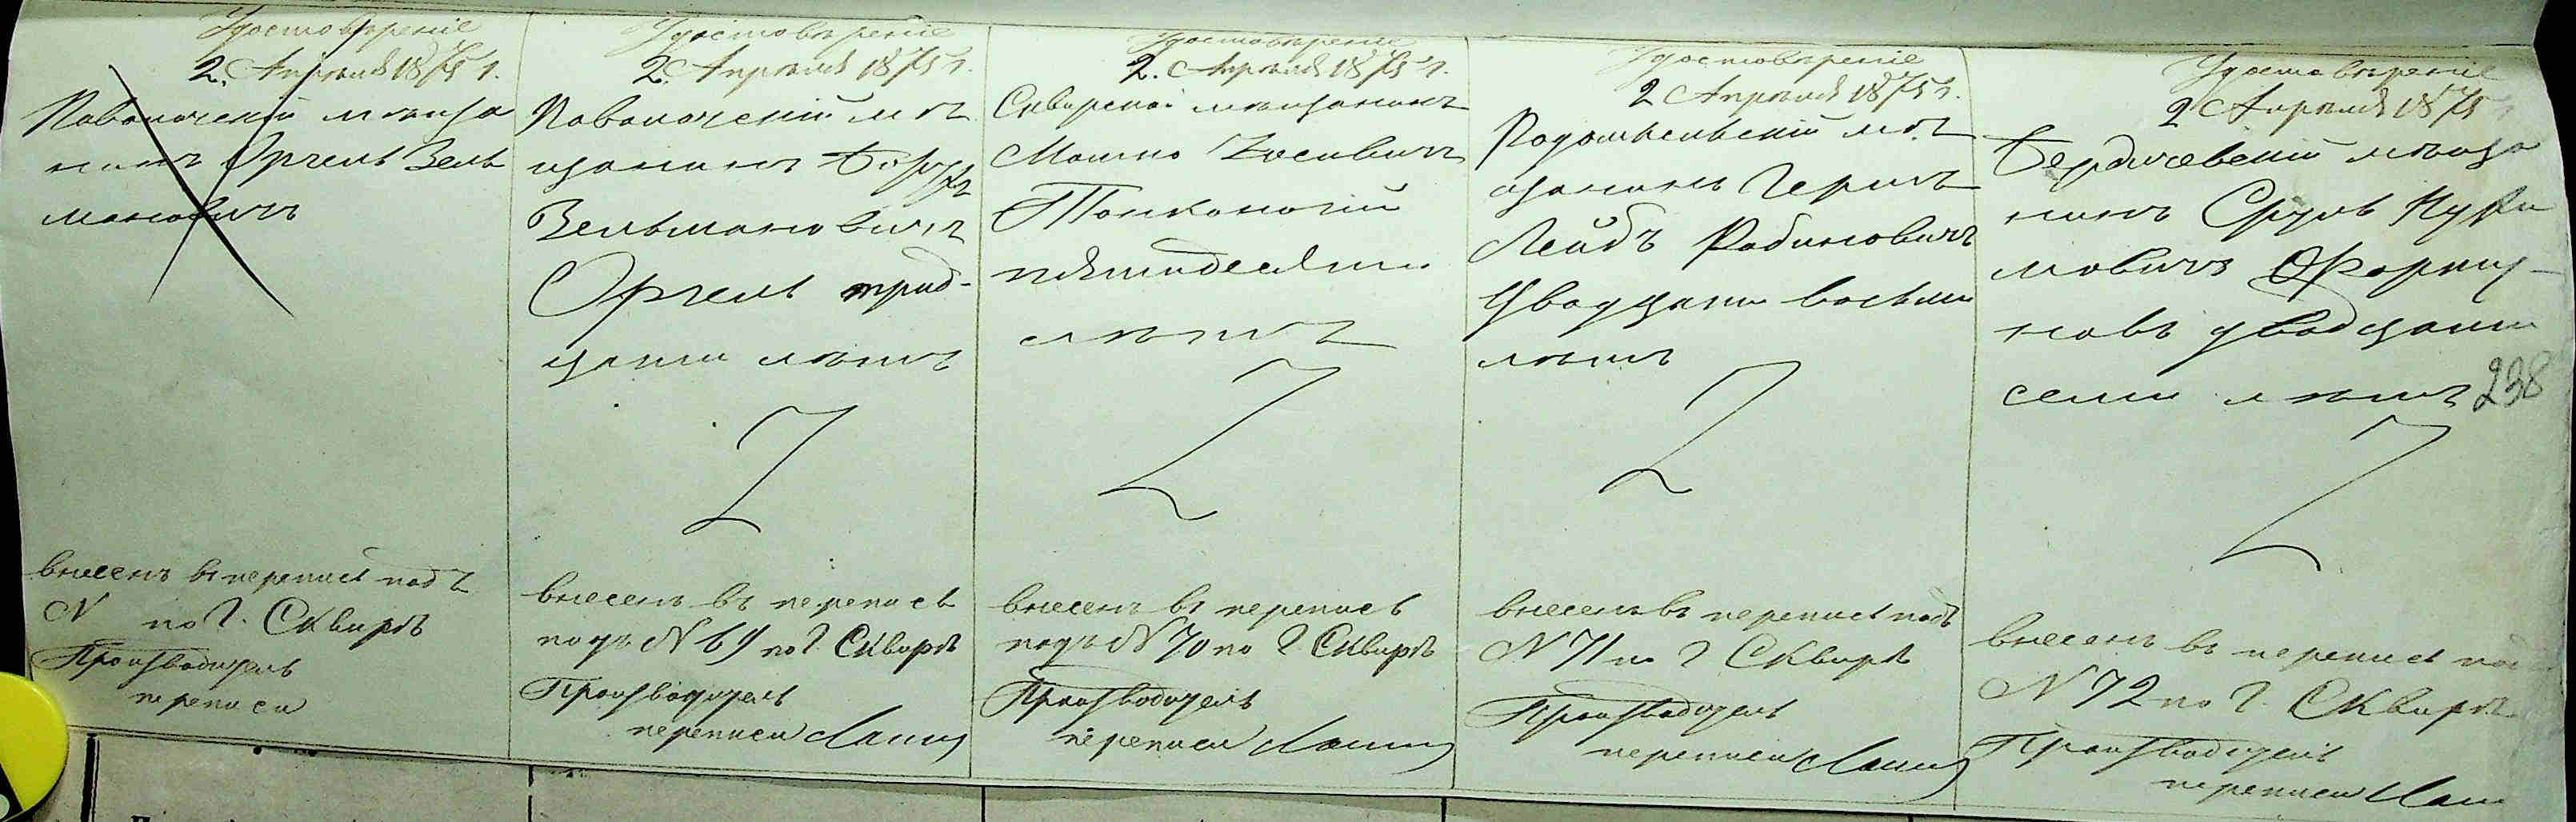 Удостовѣреніе
2. Апрѣля 1875 г.
Паволочскій мѣща
нинъ Оргель Зель
мановичъ
внесенъ въ перепись подъ
N по г. Сквирѣ
Производитель
переписи
Удостовѣреніе
2. Апрѣля 1875 г.
Паволочскій мѣ
щанинъ
Зельмановичъ
Оргель трид-
цати лѣтъ
внесенъ въ перепись
подъ N 69 по г. Сквирѣ
Производитель
переписи
Удостовѣреніе
2. Апрѣля 1875 г.
Сквирскій мѣщанинъ
Мошко
Тонконогій
пятидесяти
лѣтъ
внесенъ въ перепись
подъ N 70 по г. Сквирѣ
Производитель
переписи
Удостовѣреніе
2 Апрѣля 1875 г.
Радомысльскій мѣ
щанинъ Гершъ
Лейбъ Рабиновичъ
двадцати восьми
лѣтъ
внесенъ въ перепись подъ
N 71 по г Сквирѣ
Производитель
переписи
Удостовѣреніе
2 Апрѣля 1875
Бердичевскій мѣща
нинъ Сруль
мовичъ
новъ двадцати
семи лѣтъ
238
внесенъ въ перепись под
N 72 по г. Сквирѣ
Производитель
переписи